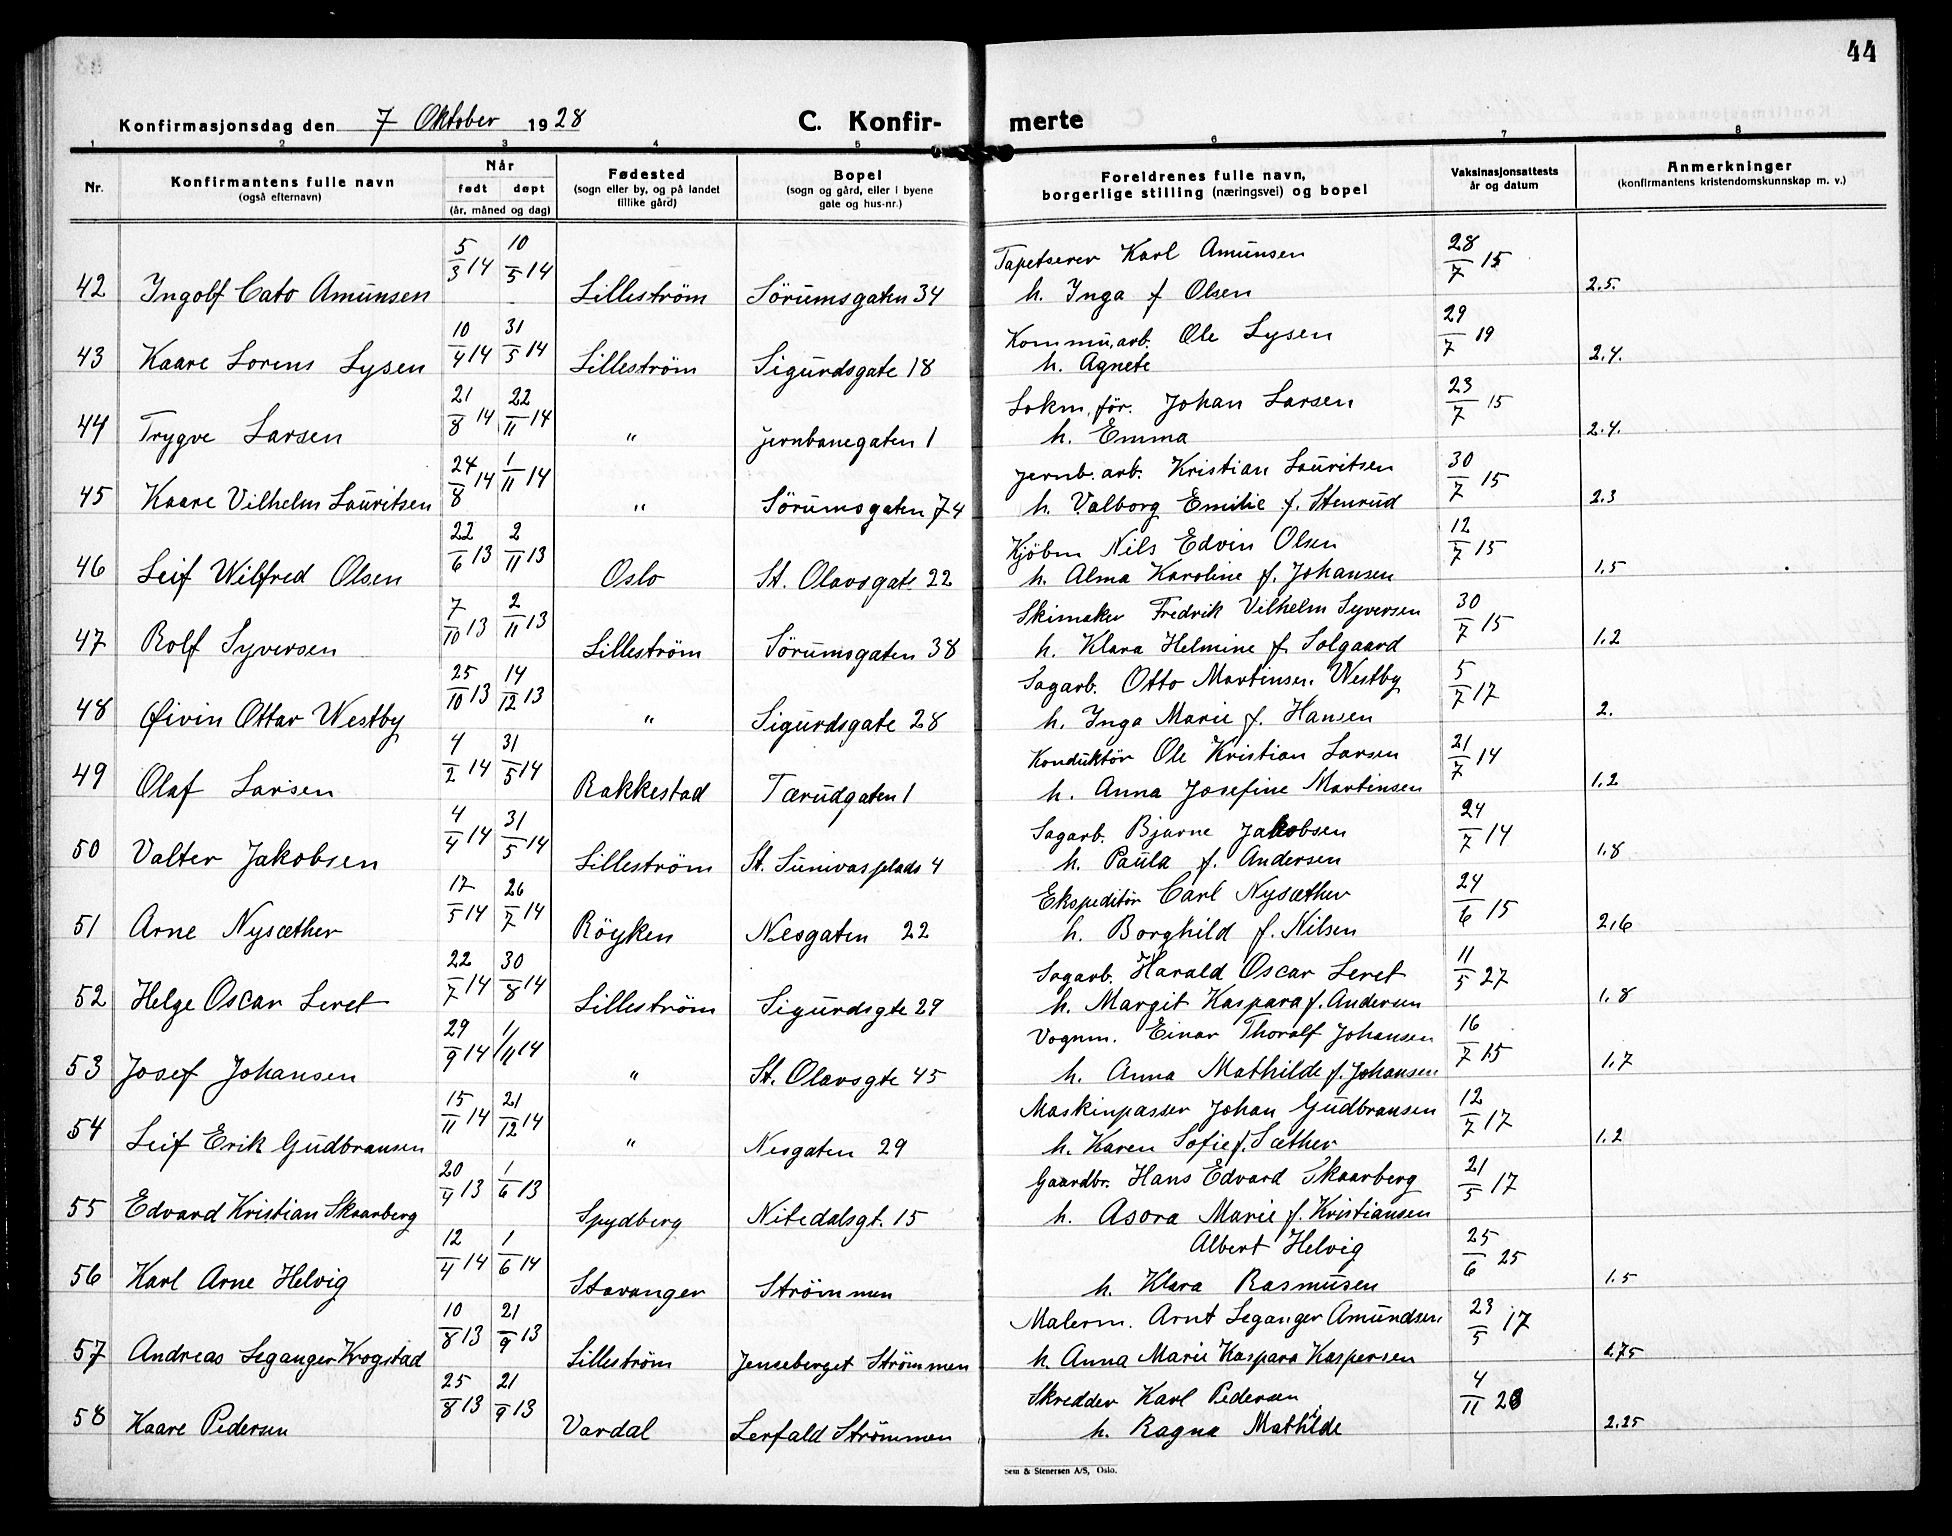 44
Konfirmasjonsdag den 7 Oktober 1928 C. Konfir- merte
1 2 3 4 5 6 7 8
Nr. Konfirmantens fulle navn (også efternavn) Når født døpt (år, måned og dag) Fødested (sogn eller by, og på landet tillike gård) Bopel (sogn og gård, eller i byene gate og hus-nr.) Foreldrenes fulle navn, borgerlige stilling (næringsvei) og bopel Vaksinasjonsattests år og datum Anmerkninger (konfirmantens kristendomskunnskap m. v.)
42 Ingolf Cato Amunsen 5/3 14 10/5 14 Lilleström Sörumsgaten 34 Tapetserer Karl Amunsen 28/7 15 2.5.
h. Inga f Olsen
43 Kaare Lorens Lysen 10/4 14 31/5 14 Lilleström Sigurdsgate 18 Kommu.arb. Ole Lysen 29/7 19 2.4.
h. Agnete
44 Trygve Larsen 21/8 14 22/11 14 " Jernbanegaten 1 Lokm.för. Johan Larsen 23/7 15 2.4.
h. Emma
45 Kaare Vilhelm Lauritsen 24/8 14 1/11 14 " Sörumsgaten 74 Jernb. arb. Kristian Lauritsen 30/7 15 2.3
h. Valborg Emilie f. Stenrud
46 Leif Wilfred Olsen 22/6 13 2/11 13 Oslo St. Olavsgate 22 Kjöbm Nils Edvin Olsen 12/7 15 1.5
h. Alma Karoline f. Johansen
47 Rolf Syversen 7/10 13 2/11 13 Lilleström Sörumsgaten 38 Skimaker Fredrik Vilhelm Syversen 30/7 15 1.2
h. Klara Helmine f. Solgaard
48 Øivin Ottar Westby 25/10 13 14/12 13 " Sigurdsgate 28 Sagarb. Otto Martinsen Westby 5/7 17 2.
h. Inga Marie f. Hansen
49 Olaf Larsen 4/2 14 31/5 14 Rakkestad Tærudgaten 1 Konduktör Ole Kristian Larsen 21/7 14 1.2
h. Anna Josefine Martinsen
50 Valter Jakobsen 4/4 14 31/5 14 Lilleström St. Sunivasplads 4 Sagarb. Bjarne Jakobsen 24/7 14 1.8
h. Paula f. Andersen
51 Arne Nysæther 17/5 14 26/7 14 Röyken Nesgaten 22 Ekspeditör Carl Nysæther 24/6 15 2,6
h. Borghild f. Nilsen
52 Helge Oscar Leret 22/7 14 30/8 14 Lilleström Sigurdsgte 29 Sagarb. Harald Oscar Leret 11/5 27 1.8
h. Margit Kaspara f. Andersen
53 Josef Johansen 29/9 14 1/11 14 " St. Olavsgte 45 Vognm. Einar Thoralf Johansen 16/7 15 1.7
h. Anna Mathilde f. Johansen
54 Leif Erik Gudbransen 15/11 14 21/12 14 " Nesgaten 29 Maskinpasser Johan Gudbransen 12/7 17 1.2
h. Karen Sofie f. Sæther
55 Edvard Kristian Skaarberg 20/4 13 1/6 13 Spydberg Nitedalsgt. 15 Gaardbr. Hans Edvard Skaarberg 21/5 17
h. Asora Marie f. Kristiansen
56 Karl Arne Helvig 12/4 14 1/6 14 Stavanger Strömmen Albert Helvig 25/6 25 1.5
h. Klara Rasmusen
57 Andreas Leganger Krogstad 10/8 13 21/9 13 Lilleström Jenseberget Strömmen Malerm. Arnt Leganger Amundsen 23/5 17 1.75
h. Anna Marie Kaspara Kaspersen
58 Kaare Pedersen 25/8 13 21/9 13 Vardal Lerfald Strömmen Skredder Karl Pedersen 4/11 28 2.25
h. Ragna Mathilde
Sem & Stenersen A/S, Oslo.